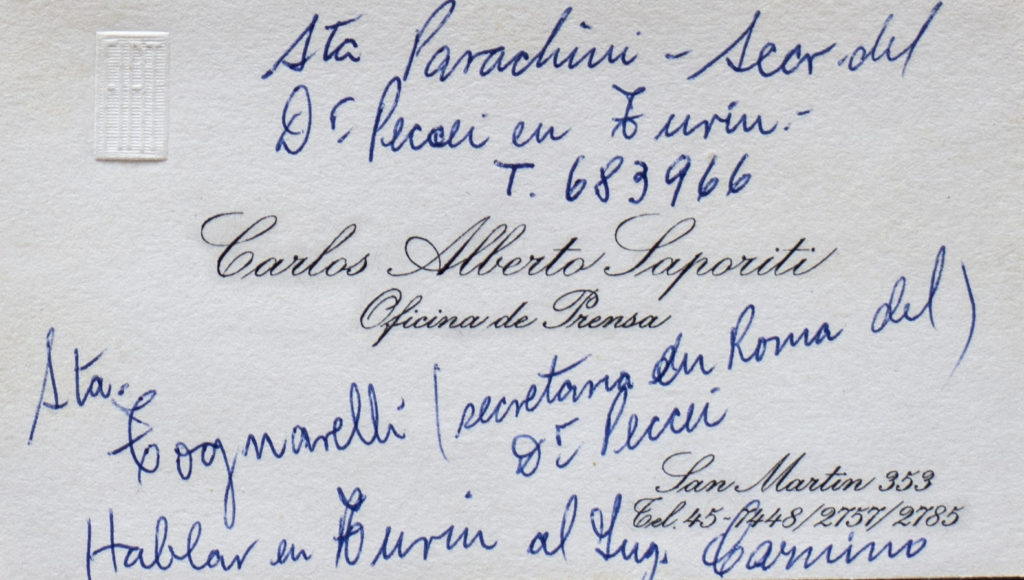 Sta Parachini - Secr. del
Dr. Peccei en Turin.-
T. 683966
Carlos Alberto Saporiti
Oficina de Prensa
Sta. Cognarelli (secretaria en Roma del)
Dr. Peccei
San Martin 353
Tel. 45-7448/2757/2785
Hablar en Turin al Ing. Carnino